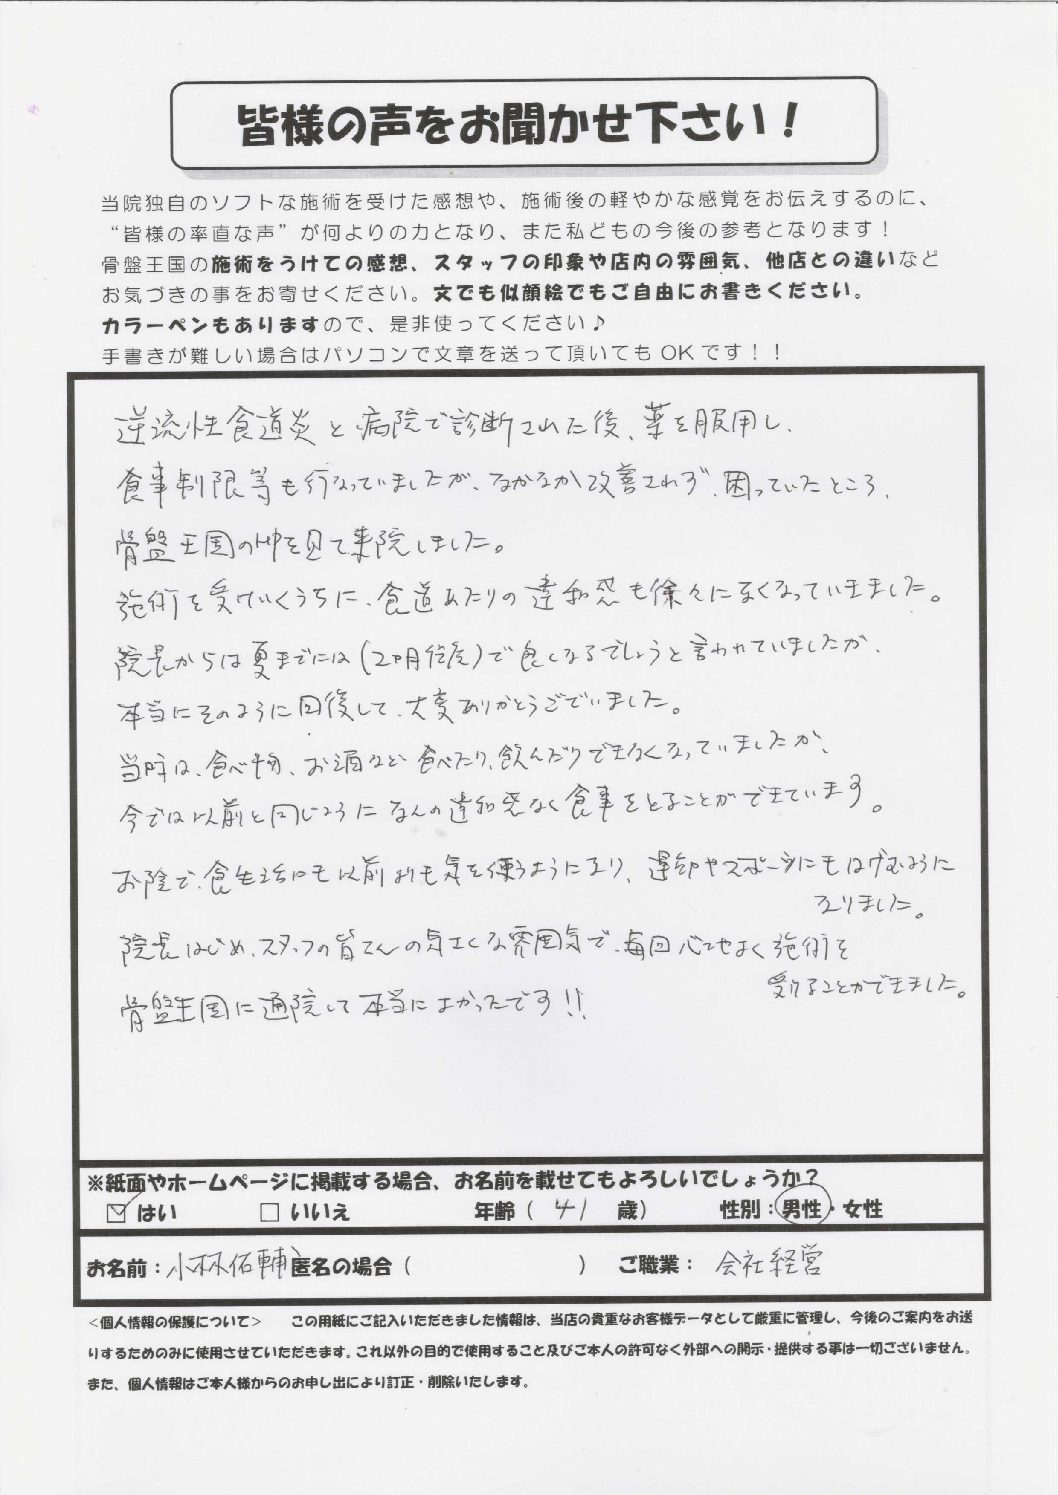 皆様の声をお聞かせ下さい！
当院独自のソフトな施術を受けた感想や、施術後の軽やかな感覚をお伝えするのに、
“皆様の率直な声”が何よりの力となり、また私どもの今後の参考となります！
骨盤王国の施術をうけての感想、スタッフの印象や店内の雰囲気、他店との違いなど
お気づきの事をお寄せください。文でも似顔絵でもご自由にお書きください。
カラーペンもありますので、是非使ってください♪
手書きが難しい場合はパソコンで文章を送って頂いてもOKです！！
逆流性食道炎と病院で診断された後、薬を服用し、
食事制限等も行なっていましたが、なかなか改善されず、困っていたところ、
骨盤王国のHPを見て来院しました。
施術を受けていくうちに、食道あたりの違和感も徐々になくなっていきました。
院長からは夏までには(2ヶ月位后)で良くなるでしょうと言われていましたが、
本当にそのように回復して、大変ありがとうございました。
当時は、食べ物、お酒など食べたり、飲んだりできなくなっていましたが、
今では以前と同じようになんの違和感なく食事をとることができています。
お陰で、食生活にも以前よりも気を使うようになり、運動やスポーツにもはげむように
なりました。
院長はじめ、スタッフの皆さんの気さくな雰囲気で、毎回心地よく施術を
受けることができました。
骨盤王国に通院して本当によかったです!!
※紙面やホームページに掲載する場合、お名前を載せてもよろしいでしょうか？
☑はい □いいえ 年齢（ 41 歳） 性別：男性・女性
お名前：小林佑輔 匿名の場合（ ） ご職業： 会社経営
＜個人情報の保護について＞ この用紙にご記入いただきました情報は、当店の貴重なお客様データとして厳重に管理し、今後のご案内をお送
りするためのみに使用させていただきます。これ以外の目的で使用すること及びご本人の許可なく外部への開示・提供する事は一切ございません。
また、個人情報はご本人様からのお申し出により訂正・削除いたします。